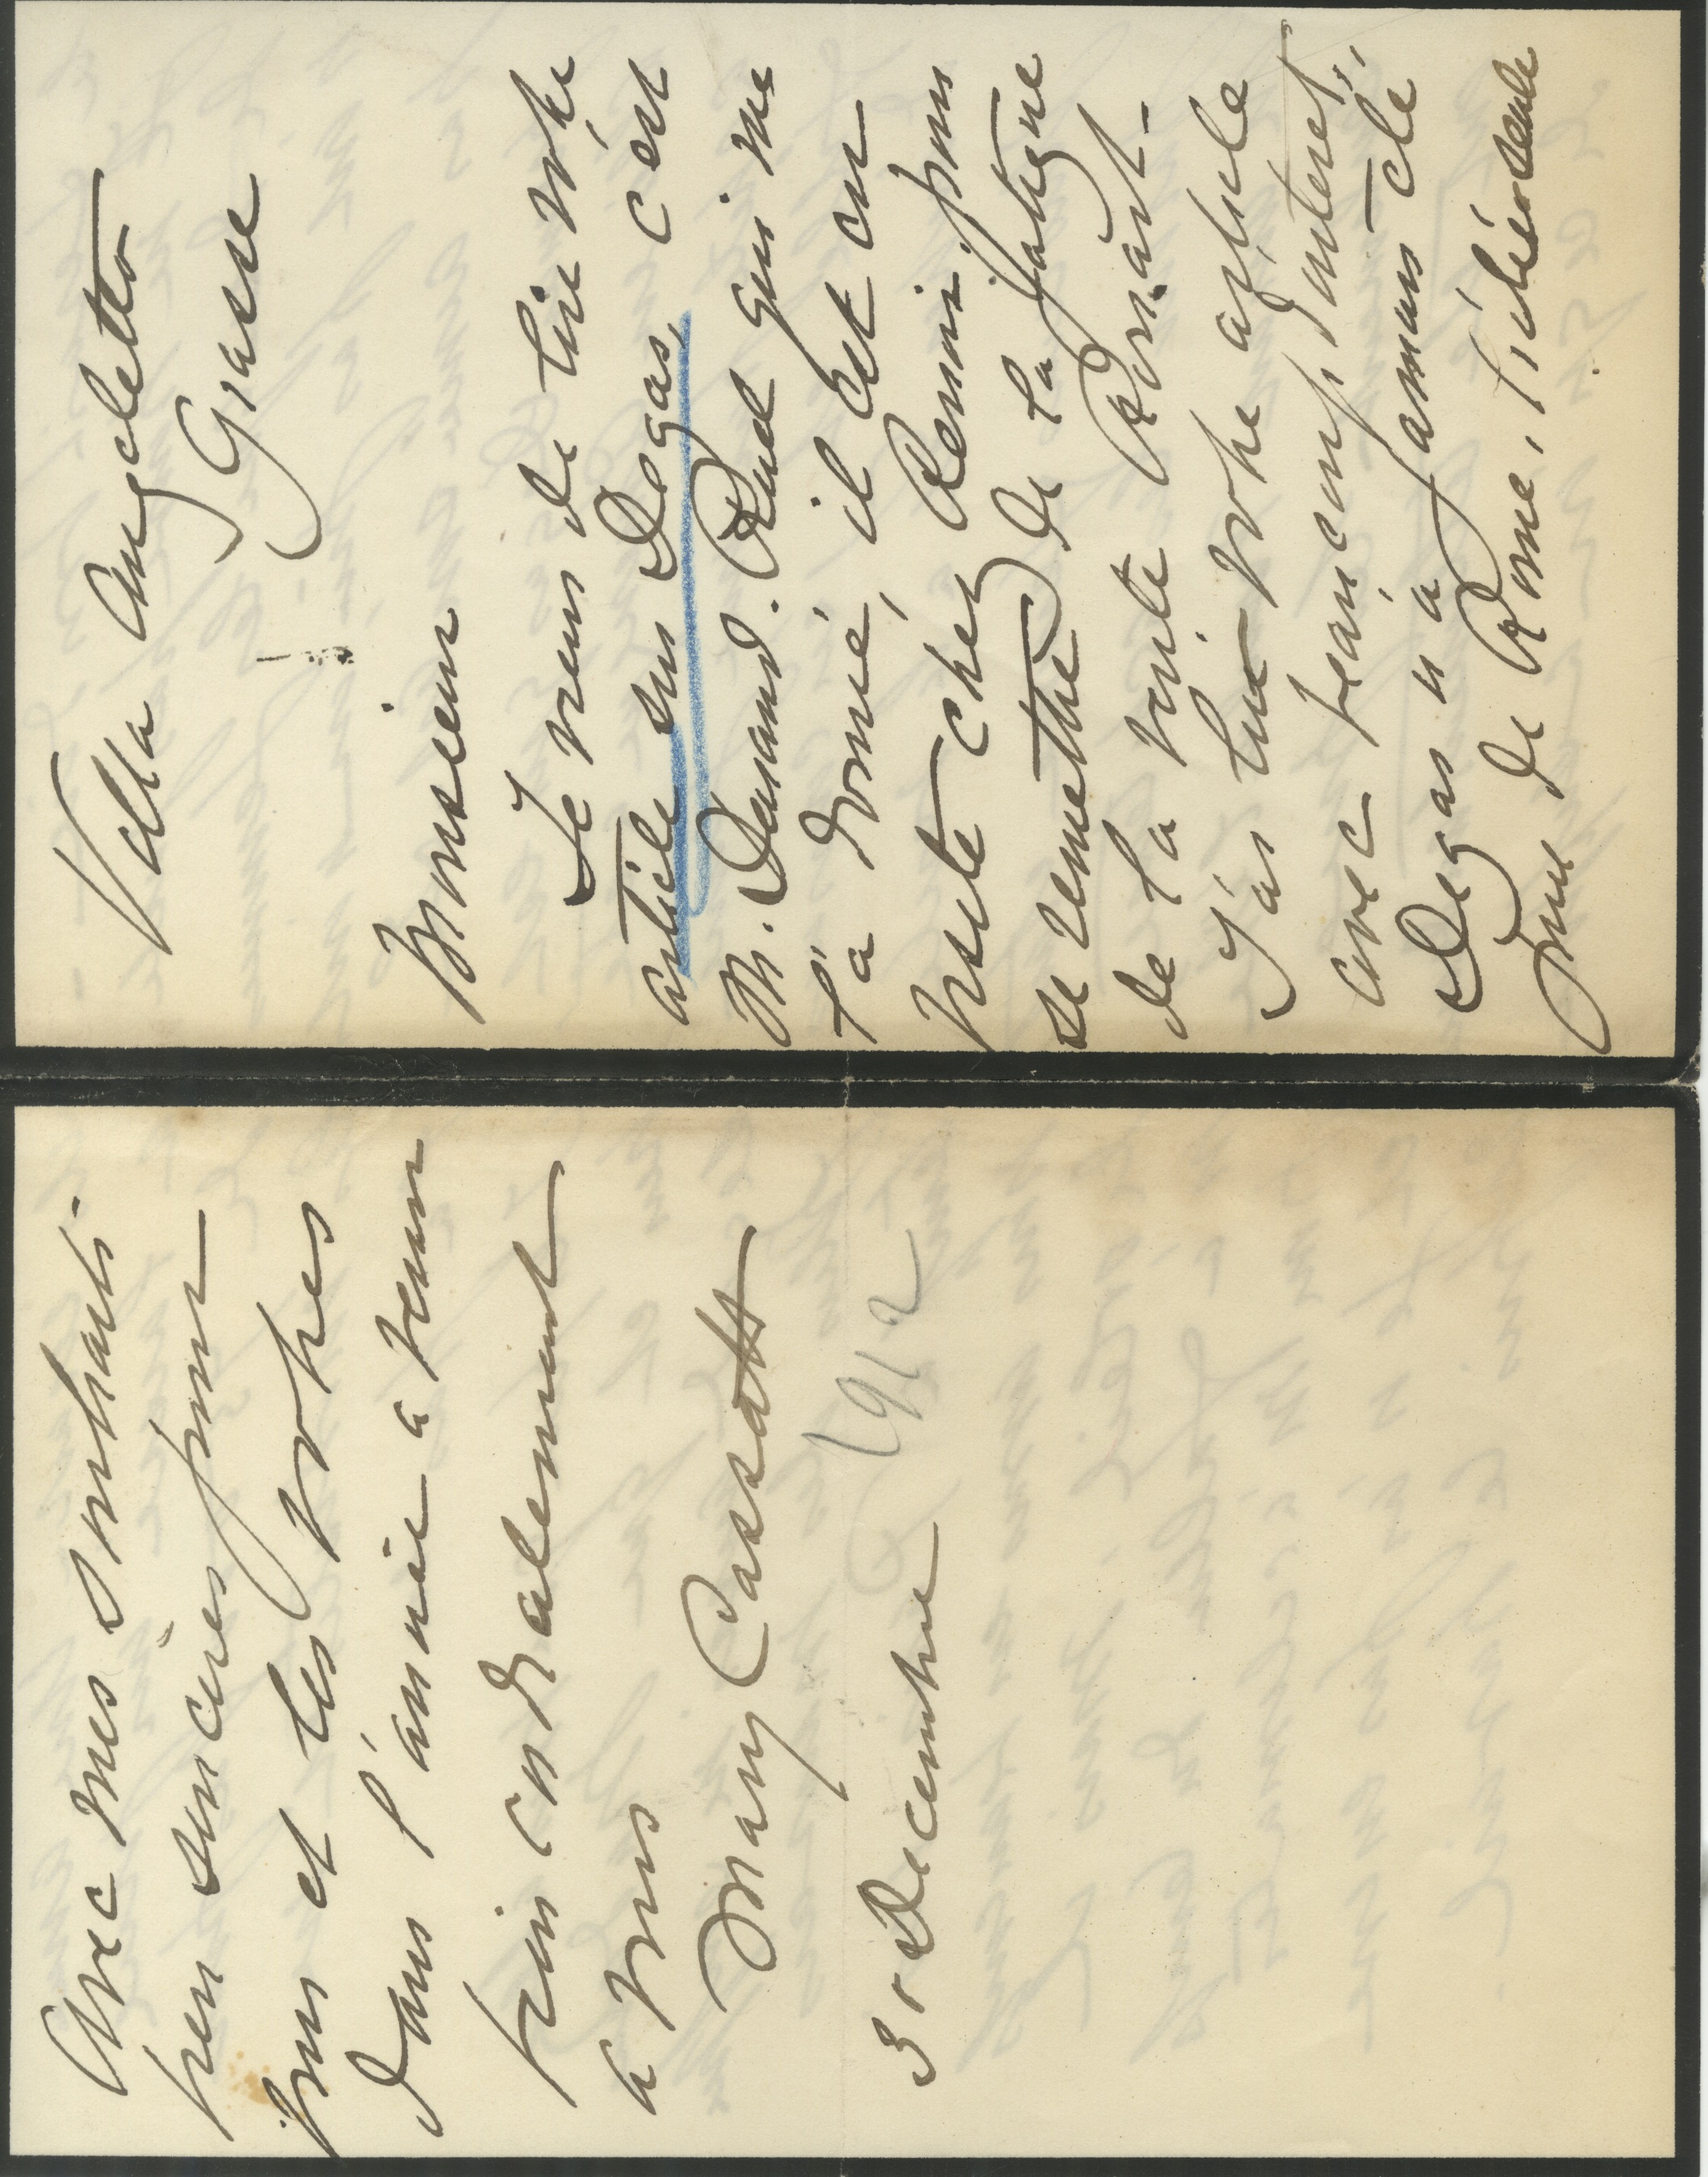 Villa Angeletto
Grasse
Monsieur
Je viens de lire votre
article sur Degas, c'est
M. Durand. Ruel qui me
l'a donné, il est en
visite chez Renoir pour
se remettre de la fatigue
de la vente Rouart -
J'ai lue votre article
avec beaucoup d'interet,
Degas n'a jamais été
prix de Rome,
Avec mes souhaits
bien sinceres pour
vous et les votres
dans l'année a venir
bien cordialement
a vous
Mary Cassatt
31 Decembre 1912